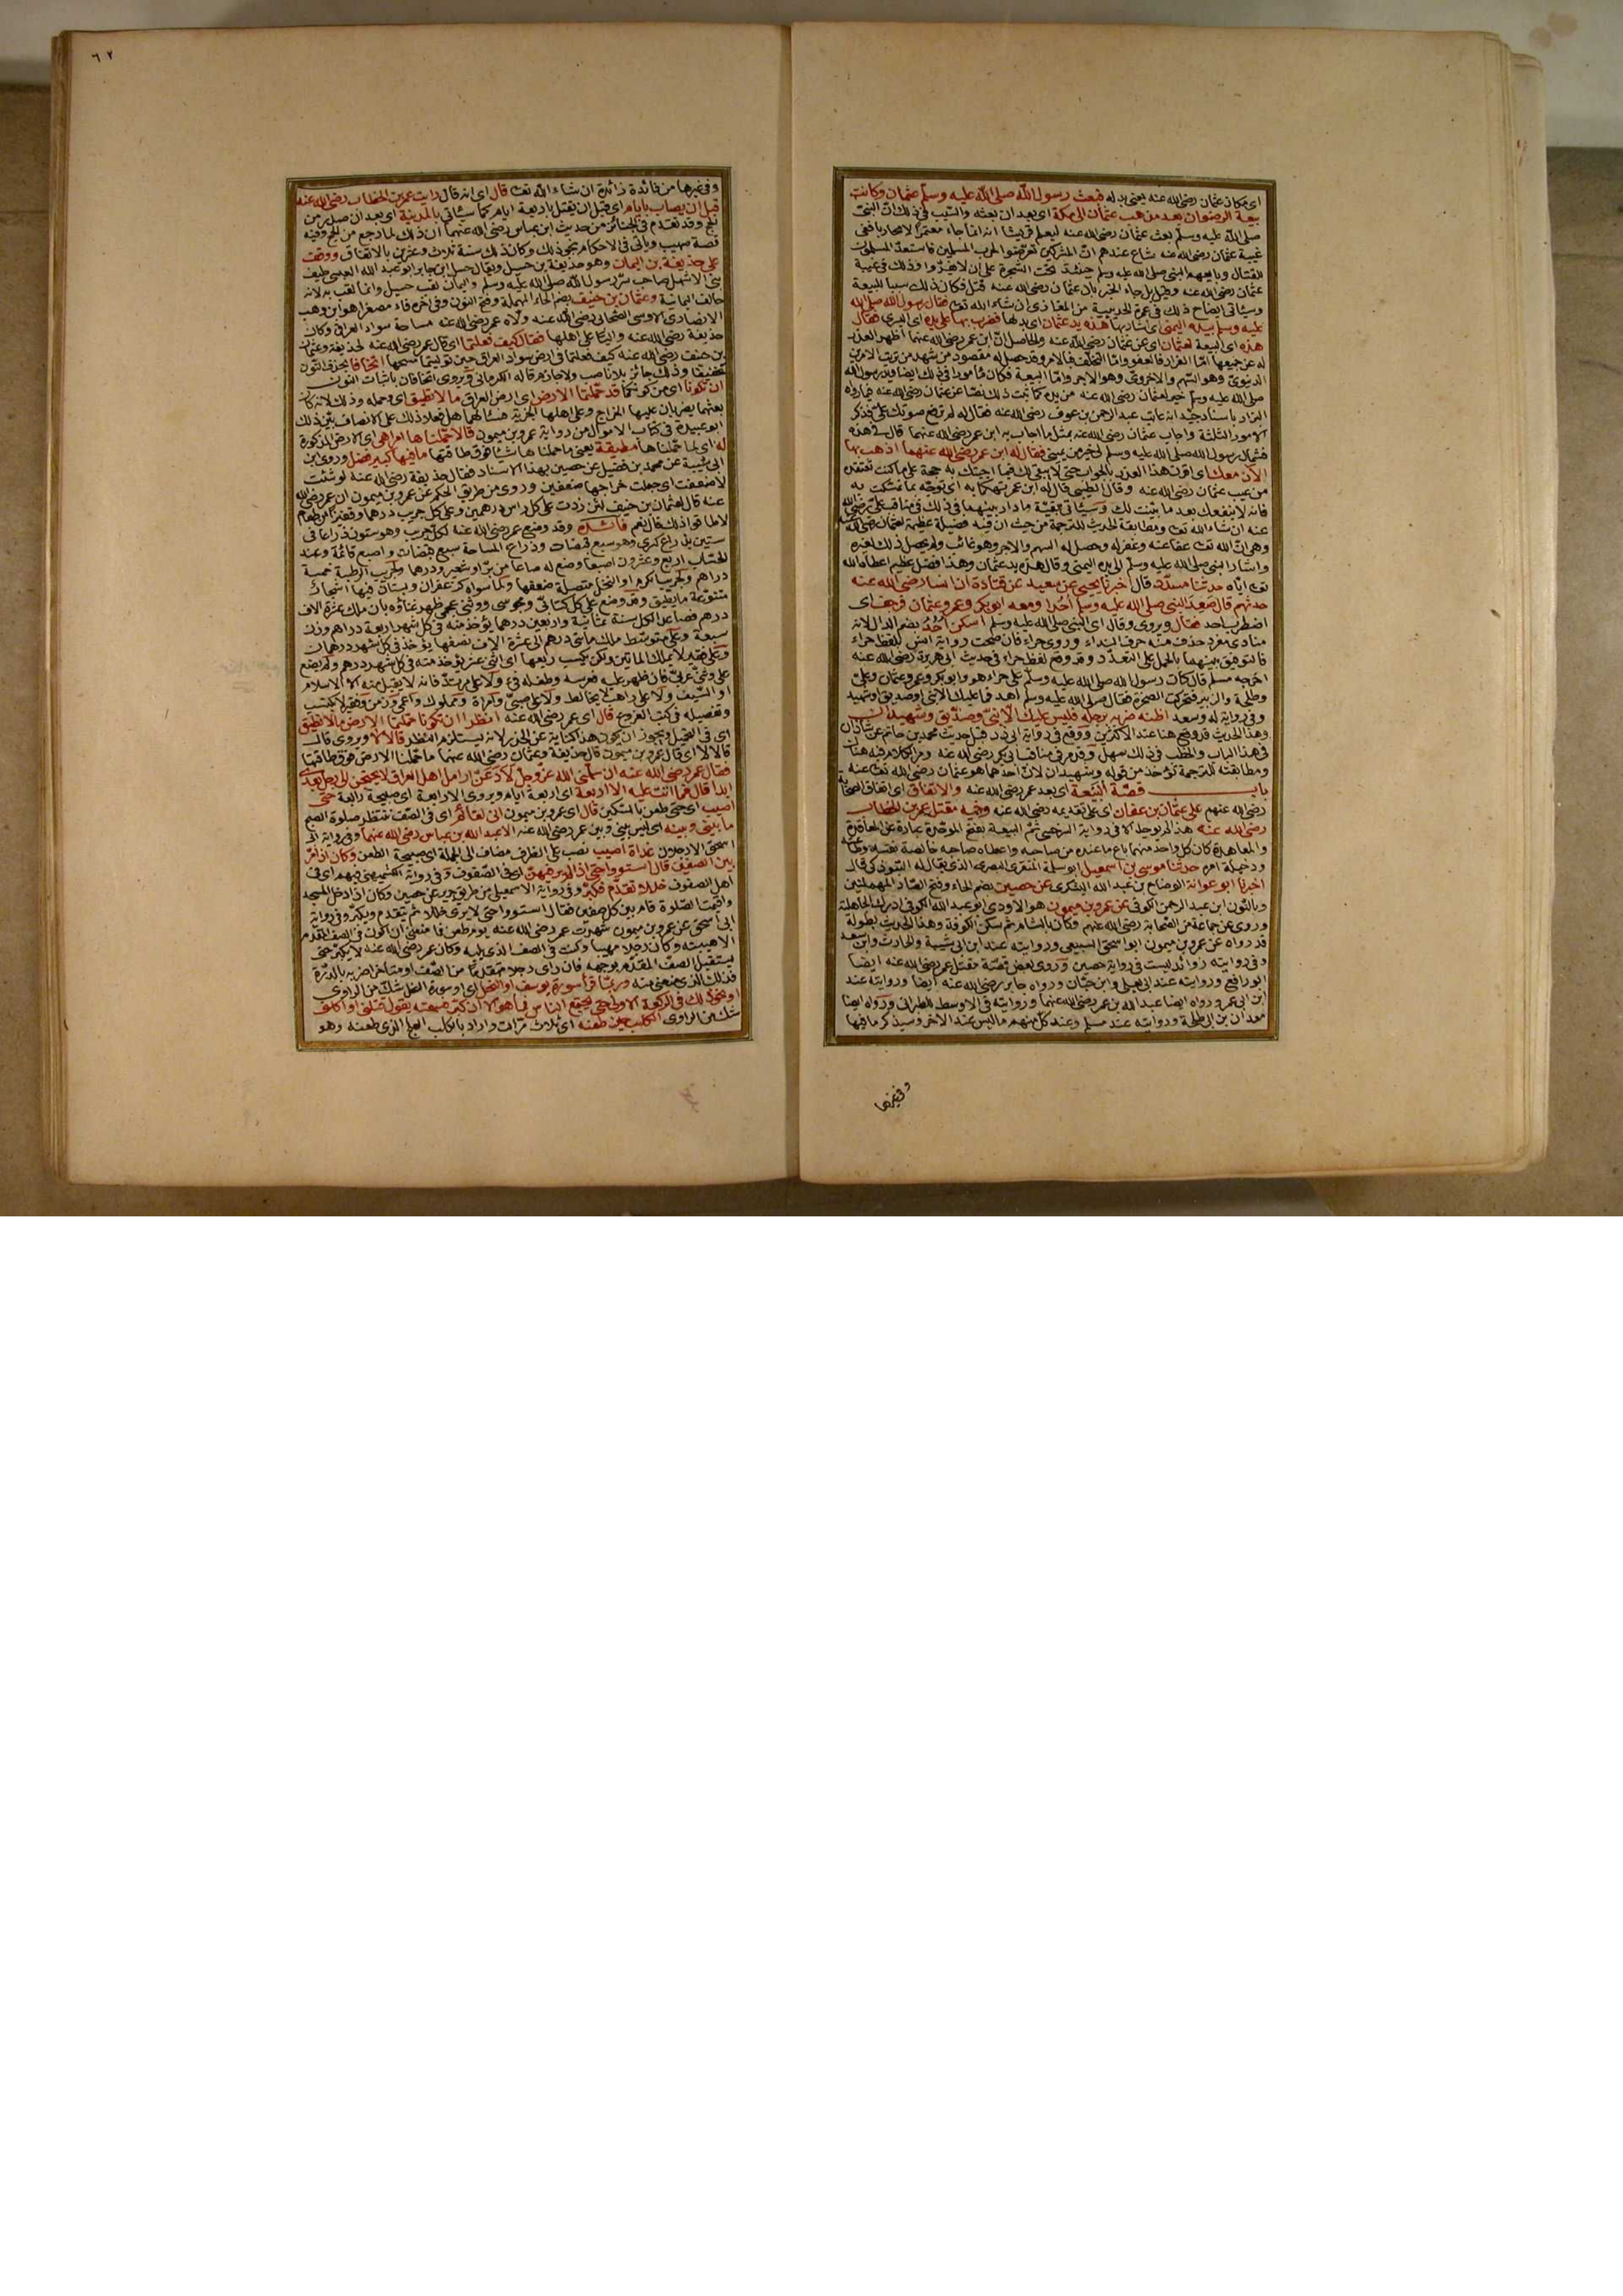 اى مكان عثمان رضى الله عنه يعنى بدله فبعث رسول الله صلى الله عليه وسلم عثمان وكانت
بيعة الرضوان بعد ما ذهب عثمان الى مكة اى بعد ان بعثه والسبب فى ذلك ان النبى
صلى الله عليه وسلم بعث عثمان رضى الله عنه ليعلم قريشا انه انما جاء معتمرا لا محاربا ففى
غيبة عثمان رضى الله عنه شاع عندهم ان المشركين تعرضوا لحرب المسلمين فاستعد المسلمون
للقتال وبايعهم النبى صلى الله عليه وسلم حينئذ تحت الشجرة على ان لا يفروا وذلك فى غيبة
عثمان رضى الله عنه وقيل بل جاء الخبر بان عثمان رضى الله عنه قتل فكان ذلك سببا للبيعة
وسيأتى ايضاح ذلك فى عمرة الحديبية من المغازى ان شاء الله تعالى فقال رسول الله صلى الله
عليه وسلم بيده اليمنى اى اشار بها هذه يد عثمان اى بدلها فضرب بها على يده اى اليسرى فقال
هذه اى البيعة لعثمان اى عن عثمان رضى الله عنه والحاصل ان ابن عمر رضى الله عنهما اظهر العذر
له عن جميعها اما الفرار فبالعفو واما التخلف فبالامر وقد حصل له مقصود من شهد من ترتب الامرين
الدنيوى وهو السهم والاخروى وهو الاجر واما البيعة فكان مأمورا فى ذلك ايضا ويد رسول الله
صلى الله عليه وسلم خير لعثمان رضى الله عنه من يده كما ثبت ذلك ايضا عن عثمان رضى الله عنه فيما رواه
البزار باسناد جيد انه عاتب عبد الرحمن بن عوف رضى الله عنه فقال له لم ترفع صوتك على فذكر
الامور الثلثة واجاب عثمان رضى الله عنه بمثل ما اجاب به ابن عمر رضى الله عنهما قال فى هذه
فشمال رسول الله صلى الله عليه وسلم لى خير من يمينى فقال له ابن عمر رضى الله عنهما اذهب بها
الآن معك اى اقرن هذا العذر بالجواب حتى لا يبقى لك فيما اجبتك به حجة على ما كنت تعتقد
من غيب عثمان رضى الله عنه وقال الطيبى قال له ابن عمر تهكما به اى توجه بما تمسكت به
فانه لا ينفعك بعد ما بينت لك وسيأتى بقية ما دار بينهما فى ذلك فى مناقب على رضى الله
عنه ان شاء الله تعالى ومطابقة الحديث للترجمة من حيث ان فيه فضيلة عظيمة لعثمان رضى الله عنه
وهى ان الله تعالى عفا عنه وغفر له وحصل له السهم والاجر وهو غائب ولم يحصل ذلك لغيره
واشار النبى صلى الله عليه وسلم الى يده اليمنى وقال هذه يد عثمان وهذا فضل عظيم اعطاه الله
تعالى اياه حدثنا مسدد قال اخبرنا يحيى عن سعيد عن قتادة ان انسا رضى الله عنه
حدثهم قال صعد النبى صلى الله عليه وسلم احدا ومعه ابو بكر وعمر وعثمان فرجف اى
اضطرب احد فقال ويروى وقال اى النبى صلى الله عليه وسلم اسكن احد بضم الدال لانه
منادى مفرد حذف منه حرف النداء وروى حراء فان صحت رواية انس بلفظ حراء
فالتوفيق بينهما بالحمل على التعدد وقد وقع لفظ حراء فى حديث ابى هريرة رضى الله عنه
اخرجه مسلم قال كان رسول الله صلى الله عليه وسلم على حراء هو وابو بكر وعمر وعثمان وعلى
وطلحة والزبير فتحركت الصخرة فقال صلى الله عليه وسلم اهدأ فما عليك الا نبى او صديق او شهيد
وفى رواية له وسعد اظنه ضربه برجله فليس عليك الا نبى وصديق وشهيدان
وهذا الحديث قد وقع هنا عند الاكثرين ووقع فى رواية ابى ذر قبل حديث محمد بن حاتم عن شاذان
فى هذا الباب والخطب فى ذلك سهل وقد مر فى مناقب ابى بكر رضى الله عنه ومر الكلام فيه هناك
ومطابقته للترجمة تؤخذ من قوله وشهيدان لان احدهما هو عثمان رضى الله تعالى عنه
باب قصة البيعة اى بعد عمر رضى الله عنه والاتفاق اى اتفاق الصحابة
رضى الله عنهم على عثمان بن عفان اى على تقديمه رضى الله عنه وفيه مقتل عمر بن الخطاب
رضى الله عنه هذا لم يوجد الا فى رواية السرخسى ثم البيعة بفتح الموحدة عبارة عن المعاقدة
والمعاهدة كان كل واحد منهما باع ما عنده من صاحبه واعطاه صاحبه خالصة نفسه وطاعته
ودخيلة امره حدثنا موسى بن اسمعيل ابو سلمة المنقرى البصرى الذى يقال له التبوذكى قال
اخبرنا ابو عوانة الوضاح بن عبد الله اليشكرى عن حصين بضم الحاء وفتح الصاد المهملتين
وبالنون ابن عبد الرحمن الكوفى عن عمرو بن ميمون هو الاودى ابو عبد الله الكوفى ادرك الجاهلية
وروى عن جماعة من الصحابة رضى الله عنهم وكان بالشام ثم سكن الكوفة وهذا الحديث بطوله
قد رواه عن عمرو بن ميمون ابو اسحق السبيعى وروايته عند ابن ابى شيبة والحارث وابن سعد
وفى روايته زوائد ليست فى رواية حصين وروى بعض قصة مقتل عمر رضى الله عنه ايضا
ابو رافع وروايته عند ابى يعلى وابن حبان ورواه جابر رضى الله عنه ايضا وروايته عند
ابن ابى عمر ورواه ايضا عبد الله بن عمر رضى الله عنهما وروايته فى الاوسط للطبرانى ورواه ايضا
معدان بن ابى طلحة وروايته عند مسلم وعند كل منهم ما ليس عند الآخر وسيذكر ما فيها
وفى غيرها
٦٢
وفى غيرها من فائدة زائدة ان شاء الله تعالى قال اى انه قال رايت عمر بن الخطاب رضى الله عنه
قبل ان يصاب بايام اى قبل ان يقتل باربعة ايام كما سيأتى بالمدينة اى بعد ان صدر من
الحج وقد تقدم فى الجنائز من حديث ابن عباس رضى الله عنهما ان ذلك لما رجع من الحج وفيه
قصة صهيب ويأتى فى الاحكام نحو ذلك وكان ذلك سنة ثلاث وعشرين بالاتفاق ووقف
على حذيفة بن اليمان وهو حذيفة بن حسيل ويقال حسل ابن جابر ابو عبد الله العبسى حليف
بنى الاشهل صاحب سر رسول الله صلى الله عليه وسلم واليمان لقب حسيل وانما لقب به لانه
حالف اليمانية وعثمان بن حنيف بضم الحاء المهملة وفتح النون وفى آخره فاء مصغرا هو ابن وهب
الانصارى الاوسى الصحابى رضى الله عنه ولاه عمر رضى الله عنه مساحة سواد العراق وكان
حذيفة رضى الله عنه واليا على اهلها فقال كيف فعلتما اى قال عمر رضى الله عنه لحذيفة وعثمان
بن حنيف رضى الله عنه كيف فعلتما فى ارض سواد العراق حين توليتما مسحها اتخافا بحذف النون
تخفيفا وذلك جائز بلا ناصب ولا جازم قاله الكرمانى ويروى اتخافان باثبات النون
ان تكونا اى من كونكما قد حملتما الارض اى ارض العراق ما لا تطيق اى حمله وذلك لانه كان
بعثهما يضربان عليها الخراج وعلى اهلها الجزية فسألهما هل فعلا ذلك على الانصاف بين ذلك
ابو عبيدة فى كتاب الاموال من رواية عمرو بن ميمون قالا حملناها امرا هى اى الارض المذكورة
له اى لما حملناها مطيقة يعنى ما حملناها شيئا فوق طاقتها ما فيها كبير فضل وروى ابن
ابى شيبة عن محمد بن فضيل عن حصين بهذا الاسناد فقال حذيفة رضى الله عنه لو شئت
لاضعفت اى جعلت خراجها ضعفين وروى من طريق الحكم عن عمرو بن ميمون ان عمر رضى الله
عنه قال لعثمان بن حنيف لئن زدت على كل راس درهمين وعلى كل جريب درهما وقفيزا من طعام
لاطاقوا ذلك قال نعم وقد وضع عمر رضى الله عنه لكل جريب وهو ستون ذراعا فى
ستين بذراع كسرى وهو سبع قبضات وذراع المساحة سبع قبضات واصبع قائمة وعند
الحساب اربع وعشرون اصبعا وضع له صاعا من بر او شعير ودرهما ولجريب الرطبة خمسة
دراهم ولجريب الكرم او النخل متصلة ضعفها ولما سواه كزعفران وبستان فيها اشجار
متنوعة ما يطيق وقد وضع على كل كتابى ومجوسى ووثنى عجمى ظهر غناؤه بان ملك عشرة الاف
درهم فصاعدا لكل سنة ثمانية واربعين درهما يؤخذ منه فى كل شهر اربعة دراهم وزن
سبعة وعلى متوسط ملك مائتى درهم الى عشرة الاف نصفها يؤخذ فى كل شهر درهمان
وعلى فقير لا يملك المائتين ولكن يكسب ربعها اى اثنى عشر يؤخذ منه فى كل شهر درهم ولم يضع
على وثنى عربى فان ظهر عليه فعرسه وطفله فئ ولا على مرتد فانه لا يقبل منه الا الاسلام
او السيف ولا على راهب لا يخالط ولا على صبى وامراة ومملوك واعمى وزمن وفقير لا يكتسب
وتفصيله فى كتب الفروع قال اى عمر رضى الله عنه انظرا ان تكونا حملتما الارض ما لا تطيق
اى فى التحميل ويجوز ان يكون هذا كناية عن الحذر لانه يستلزم النظر قالا لا ويروى قال
قالا لا اى قال عمرو بن ميمون قال حذيفة وعثمان رضى الله عنهما ما حملنا الارض فوق طاقتها
فقال عمر رضى الله عنه ان سلمنى الله عز وجل لادعن ارامل اهل العراق لا يحتجن الى رجل بعدى
ابدا قال فما اتت عليه الا اربعة اى اربعة ايام ويروى الا رابعة اى صبيحة رابعة حتى
اصيب اى حتى طعن بالسكين قال اى عمرو بن ميمون انى لقائم اى فى الصف ننتظر صلوة الصبح
ما بينى وبينه اى ليس بينى وبين عمر رضى الله عنه الا عبد الله بن عباس رضى الله عنهما وفى رواية ابى
اسحق الا رجلان غداة اصيب نصب على الظرف مضاف الى الجملة اى صبيحة الطعن وكان اذا مر
بين الصفين قال استووا حتى اذا لم ير فيهن اى فى الصفوف وفى رواية الكشميهنى فيهم اى فى
اهل الصفوف خللا تقدم فكبر وفى رواية الاسمعيلى من طريق جرير عن حصين وكان اذا دخل المسجد
واقيمت الصلوة قام بين كل صفين فقال استووا حتى لا يرى خللا ثم يتقدم ويكبر وفى رواية
ابى اسحق عن عمرو بن ميمون شهدت عمر رضى الله عنه يوم طعن فما منعنى ان اكون فى الصف المقدم
الا هيبته وكان رجلا مهيبا وكنت فى الصف الذى يليه وكان عمر رضى الله عنه لا يكبر حتى
يستقبل الصف المقدم بوجهه فان راى رجلا متقدما من الصف او متاخرا ضربه بالدرة
فذلك الذى منعنى منه وربما قرأ سورة يوسف او النحل اى او سورة النحل شك من الراوى
او نحو ذلك فى الركعة الاولى حتى يجتمع الناس فما هو الا ان كبر فسمعته يقول قتلنى او اكلنى
شك من الراوى الكلب حين طعنه اى ثلاث مرات واراد بالكلب العلج الذى طعنه وهو